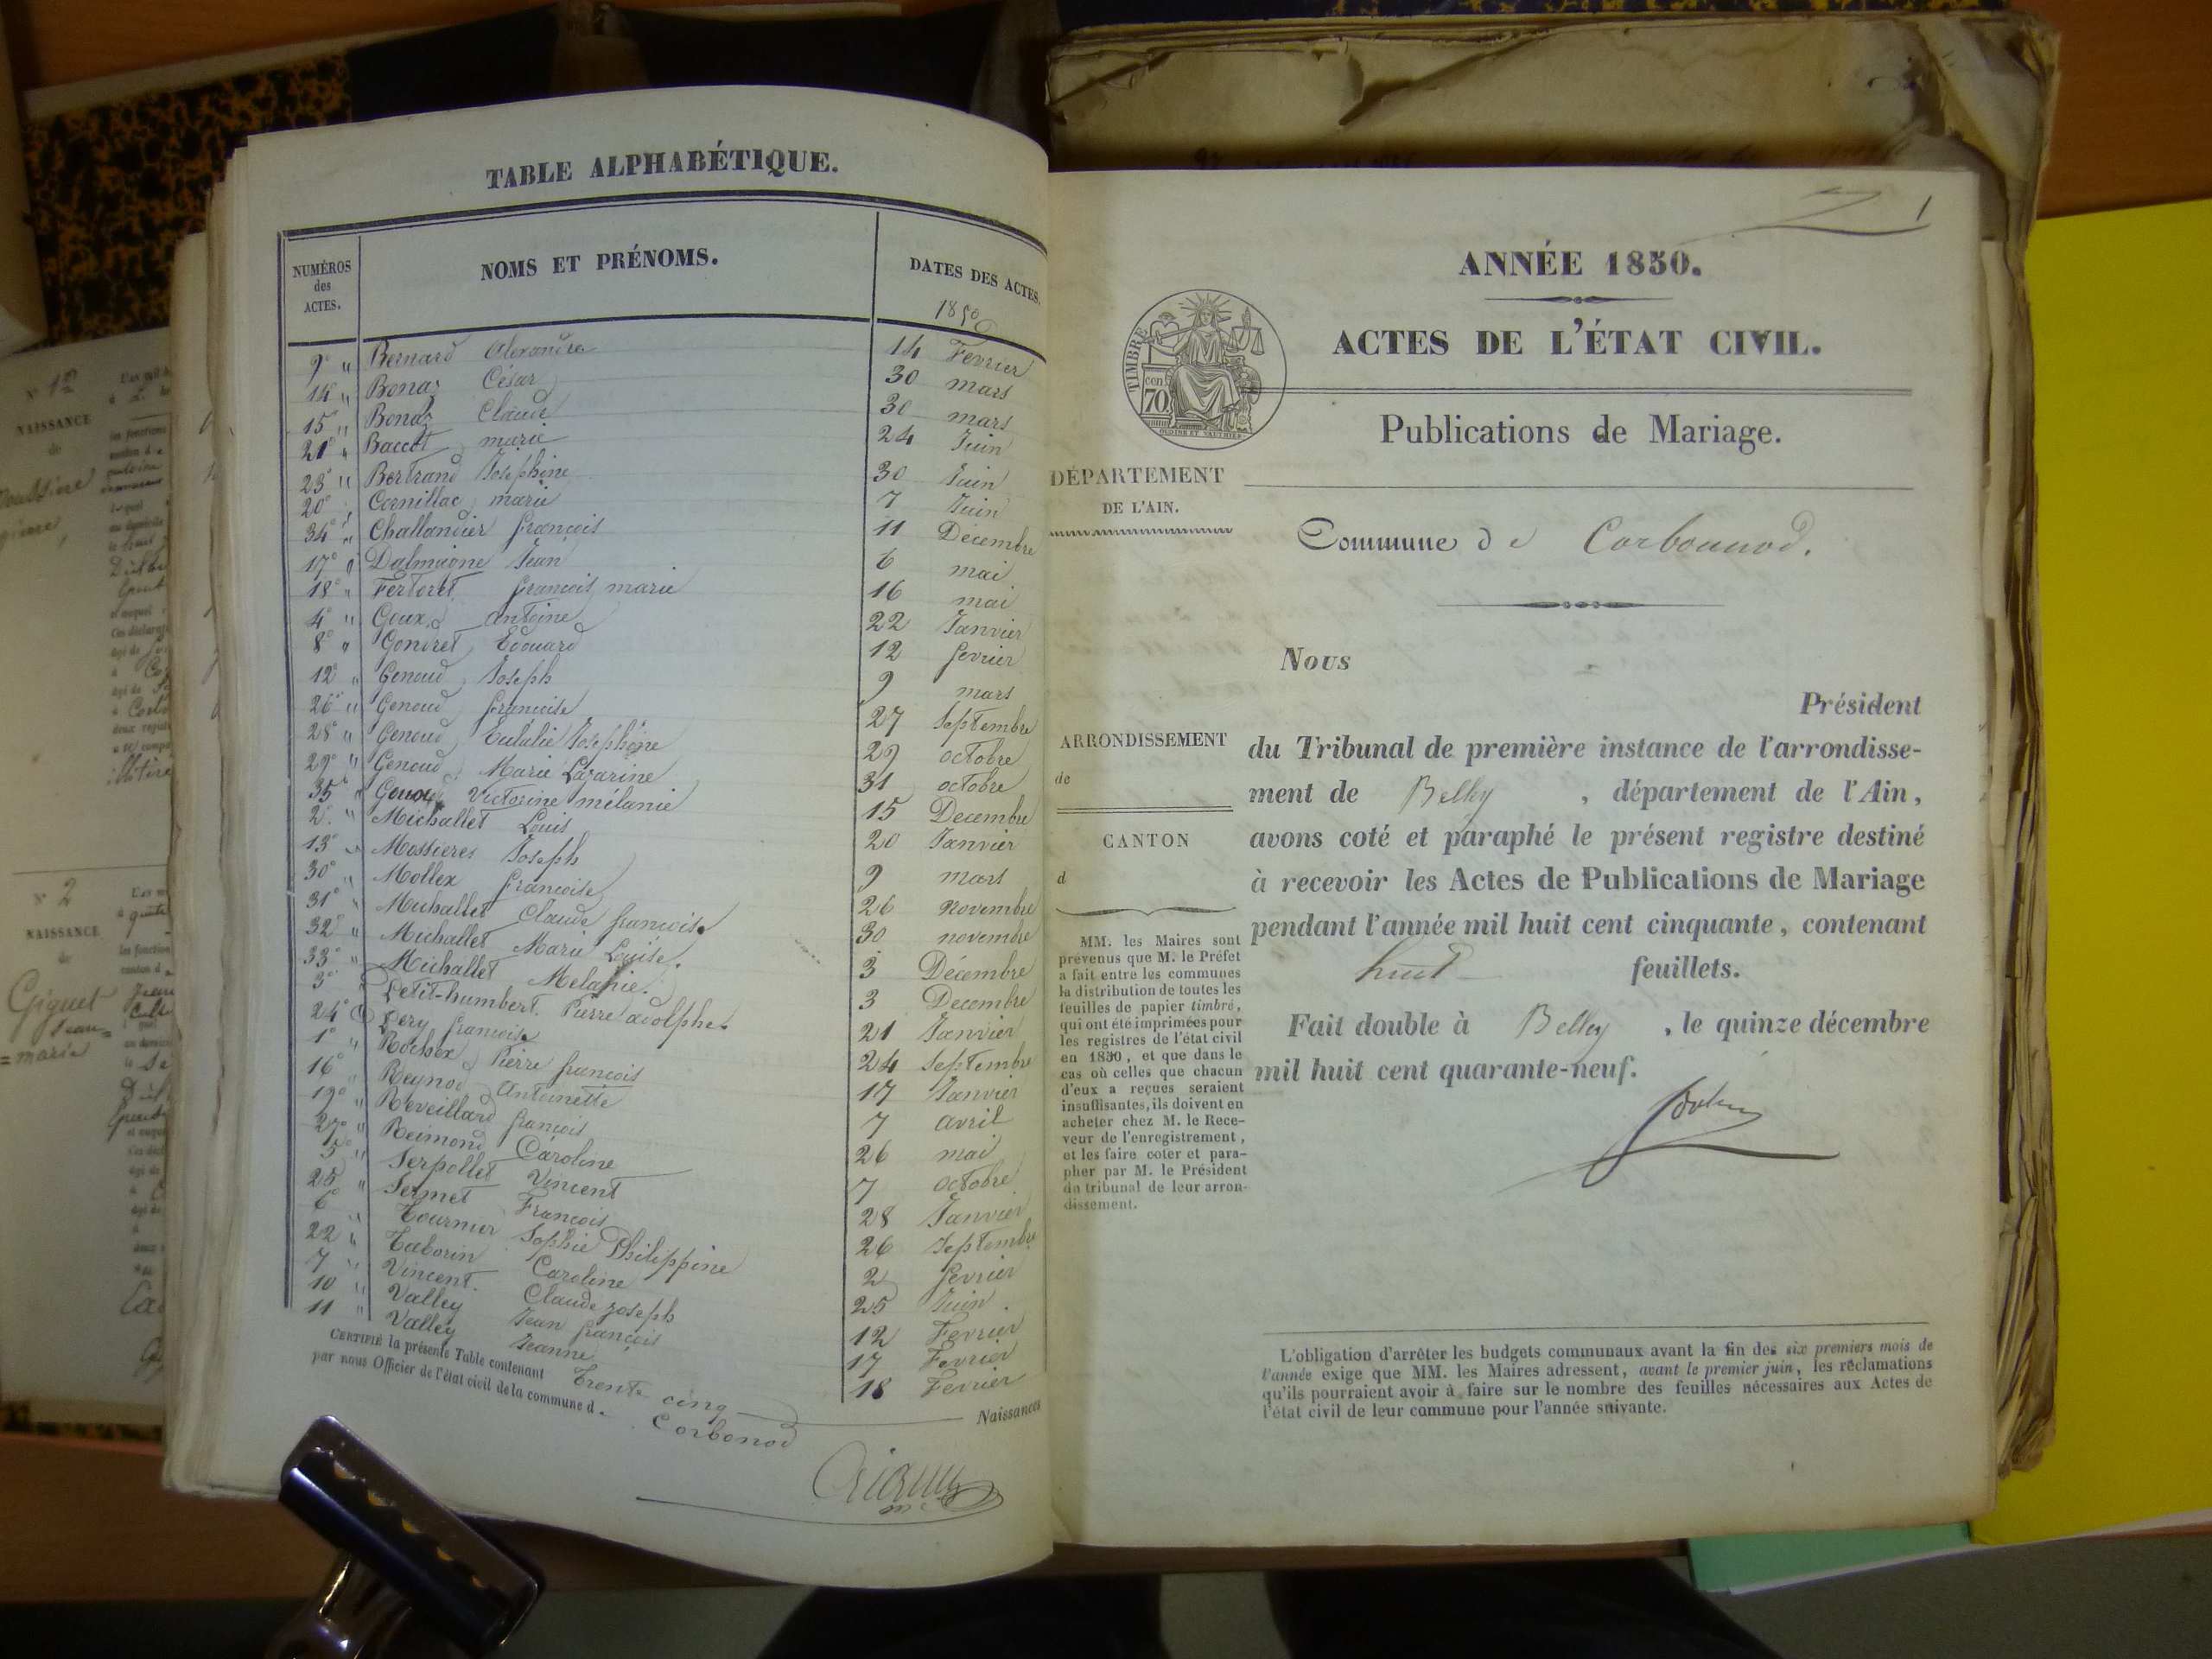 TABLE ALPHABÉTIQUE.
NUMÉROS des ACTES.
NOMS ET PRÉNOMS.
DATES DES ACTES.
1850
9° " Bernard Alexandre 14 Fevrier
14 " Bonaz César 30 mars
15° " Bonaz Claude 30 mars
21° " Baccot marie 24 Juin
23° " Bertrand Josephine 30 Juin
20° " Cornillac marie 7 Juin
34° " Challandier françois 11 Décembre
17° " Dalmaione Jean 6 mai
18° " Fertoret françois marie 16 mai
4° " Goux antoine 22 Janvier
8° " Gondret Edouard 12 fevrier
12° " Genoud Joseph 9 mars
26° " Genoud françoise 27 Septembre
28° " Genoud Eulalie Josephine 29 octobre
29° " Genoud Marie Lazarine 31 octobre
35° " Genoud Victorine mélanie 15 Decembre
2° " Michallet Louis 20 Janvier
13° " Mossieres Joseph 9 mars
30° " Mollex françoise 26 Novembre
31° " Michallet Claude françoise 30 novembre
32° " Michallet Marie Louise. 3 Décembre
33° " Michallet Melanie. 3 Decembre
3° " Petit-humbert. Pierre adolphe. 21 Janvier
24° Pery françoise 24 Septembre
1° " Rochex Pierre françois 17 Janvier
16° " Reynod Antoinette 7 avril
19° " Reveillard françois 26 mai
27° " Reimond Caroline 7 octobre
5° " Serpollet Vincent 28 Janvier
25° " Sermet François 26 Septembre
6° " Tournier Sophie Philippine 2 fevrier
22 " Taborin Caroline 25 Juin.
7 " Vincent. Claude joseph 12 Fevrier
10 " Valley Jean françois 17 Fevrier
11 " Valley Jeanne 18 Fevrier
CERTIFIÉ la présente Table contenant Trente cinq Naissances
par nous Officier de l'état civil de la commune d. Corbonod
1
ANNÉE 1850.
ACTES DE L'ÉTAT CIVIL.
TIMBRE
cen 70
Publications de Mariage.
DÉPARTEMENT
DE L'AIN.
Commune de Corbonod.
Nous
Président
du Tribunal de première instance de l'arrondisse-
ment de Belley , département de l'Ain,
avons coté et paraphé le présent registre destiné
à recevoir les Actes de Publications de Mariage
pendant l'année mil huit cent cinquante, contenant
huit feuillets.
Fait double à Belley , le quinze décembre
mil huit cent quarante-neuf.
ARRONDISSEMENT
de
CANTON
d
MM. les Maires sont
prévenus que M. le Préfet
a fait entre les communes
la distribution de toutes les
feuilles de papier timbré,
qui ont été imprimées pour
les registres de l'état civil
en 1850, et que dans le
cas où celles que chacun
d'eux a reçues seraient
insuffisantes, ils doivent en
acheter chez M. le Rece-
veur de l'enregistrement,
et les faire coter et para-
pher par M. le Président
du tribunal de leur arron-
dissement.
L'obligation d'arrêter les budgets communaux avant la fin des six premiers mois de
l'année exige que MM. les Maires adressent, avant le premier juin, les réclamations
qu'ils pourraient avoir à faire sur le nombre des feuilles nécessaires aux Actes de
l'état civil de leur commune pour l'année suivante.
N° 12
NAISSANCE
de
N° 2
NAISSANCE
de
Giguet
Jean=
=marie